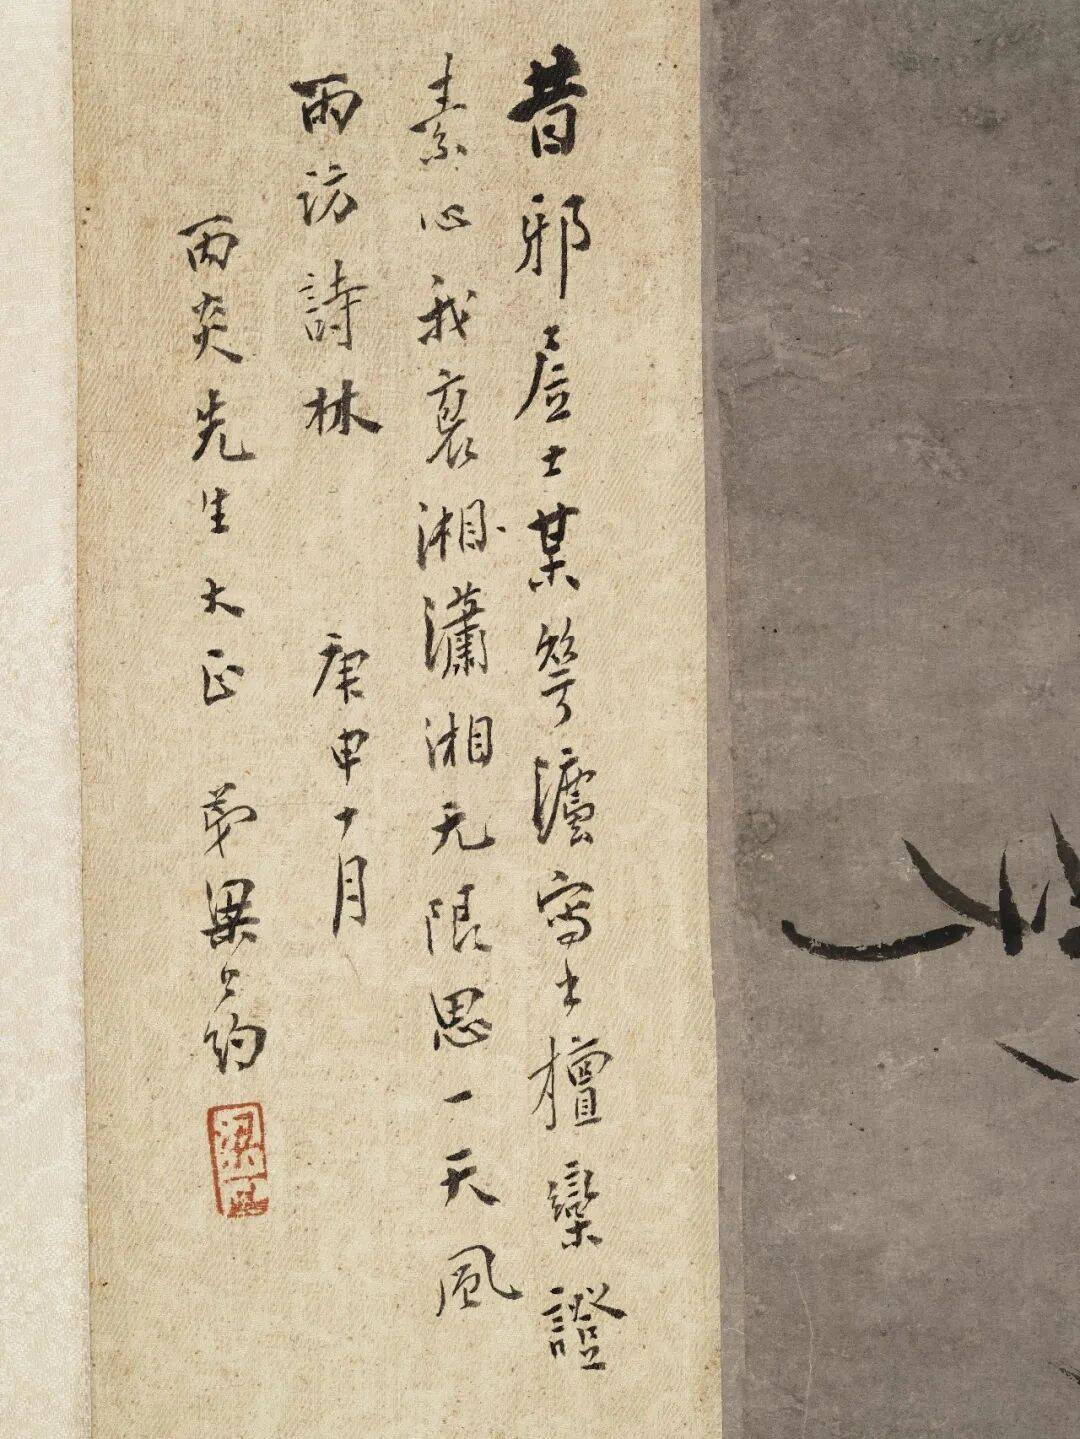 昔邪居士某筆瀘寫出檀欒證
素心我裏湘瀟湘无限思一天風
雨訪詩林 庚申十月
丙炎先生大正 弟梁公約